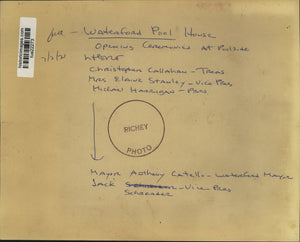 Waterford Pool House
Opening Ceremonies at Poolside
7/3/71
Christopher Callahan - Treas
Mrs Elaine Stanley - Vice Pres
Michael Harrigan - Pres
RICHEY
PHOTO
Mayor Anthony Catello - Waterford Mayor
Jack - Vice Pres
Schrader